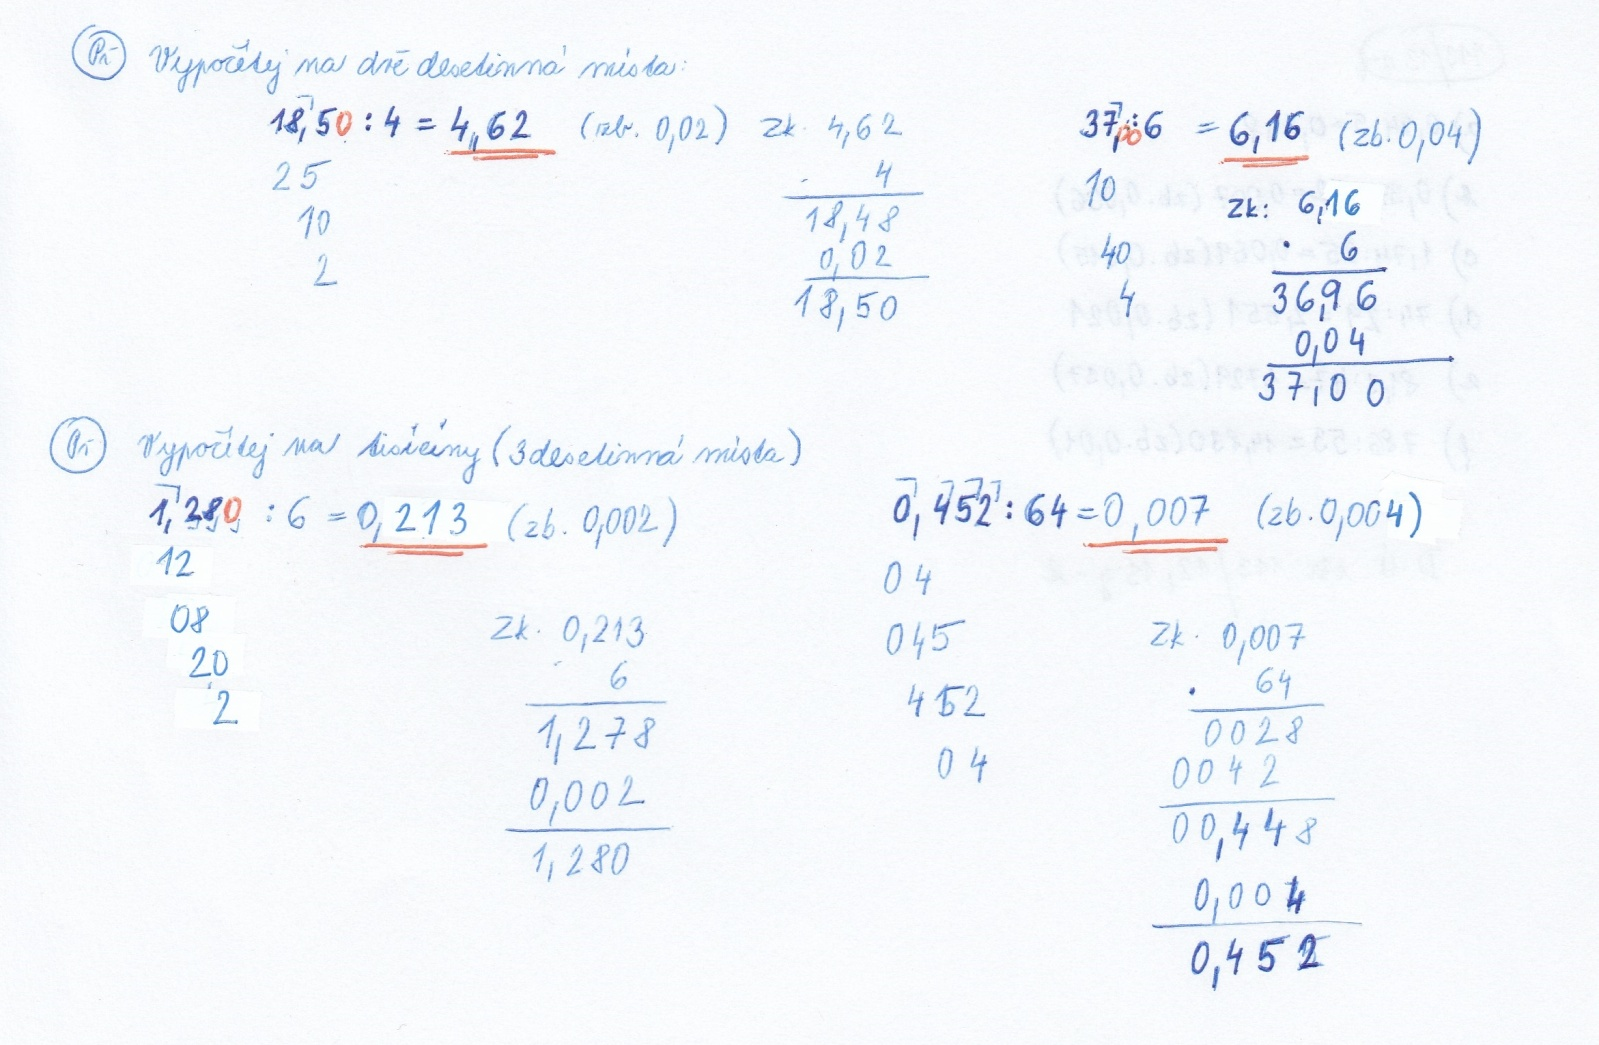 Př Vypočítej na dvě desetinná místa:
18,50 : 4 = 4,62 (zb. 0,02)
25
10
2
Zk. 4,62
. 4
18,48
0,02
18,50
37,00 : 6 = 6,16 (zb. 0,04)
10
40
4
Zk: 6,16
. 6
36,96
0,04
37,00
Př Vypočítej na tisíciny (3 desetinná místa)
1,280 : 6 = 0,213 (zb. 0,002)
12
08
20
2
Zk. 0,213
. 6
1,278
0,002
1,280
0,452 : 64 = 0,007 (zb. 0,004)
04
045
452
04
Zk. 0,007
. 64
0028
0042
00,448
0,004
0,452